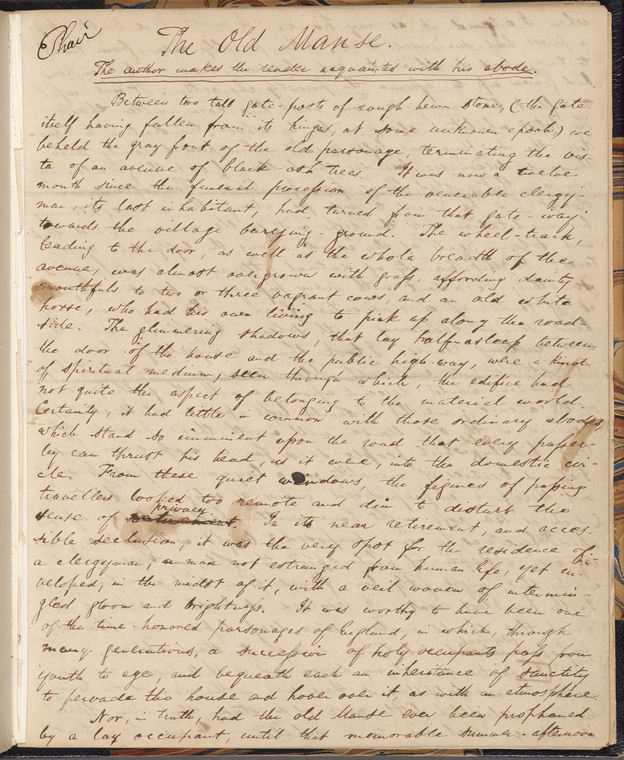 Phair
The Old Manse.
The author makes the reader acquainted with his abode.
Between two tall gate-posts of rough-hewn stone, (the gate
itself having fallen from its hinges, at some unknown epoch) we
beheld the gray front of the old parsonage, terminating the vis-
ta of an avenue of black-ash trees. It was now a twelve-
month since the funeral procession of the venerable clergy-
man, its last inhabitant, had turned from that gate-way
towards the village burying-ground. The wheel-track,
leading to the door, as well as the whole breadth of the
avenue, was almost overgrown with grass, affording dainty
mouthfuls to two or three vagrant cows, and an old white
horse, who had his own living to pick up along the road-
side. The glimmering shadows, that lay half-asleep between
the door of the house and the public high-way, were a kind
of spiritual medium, seen through which, the edifice had
not quite the aspect of belonging to the material world.
Certainly, it had little in common with those ordinary abodes,
which stand so imminent upon the road that every passer-
by can thrust his head, as it were, into the domestic cir-
cle. From these quiet windows the figures of passing
travellers looked too remote and dim to disturb the
sense of privacy. In its near retirement, and acces-
sible seclusion, it was the very spot for the residence of
a clergyman; a man not estranged from human life, yet en-
veloped, in the midst of it, with a veil woven of intermin-
gled gloom and brightness. It was worthy to have been one
of the time-honored parsonages of England, in which, through
many generations, a succession of holy occupants pass from
youth to age, and bequeath each an inheritance of sanctity
to pervade the house and hover over it as with an atmosphere.
Nor, in truth, had the old Manse ever been prophaned
by a lay occupant, until that memorable summer-afternoon